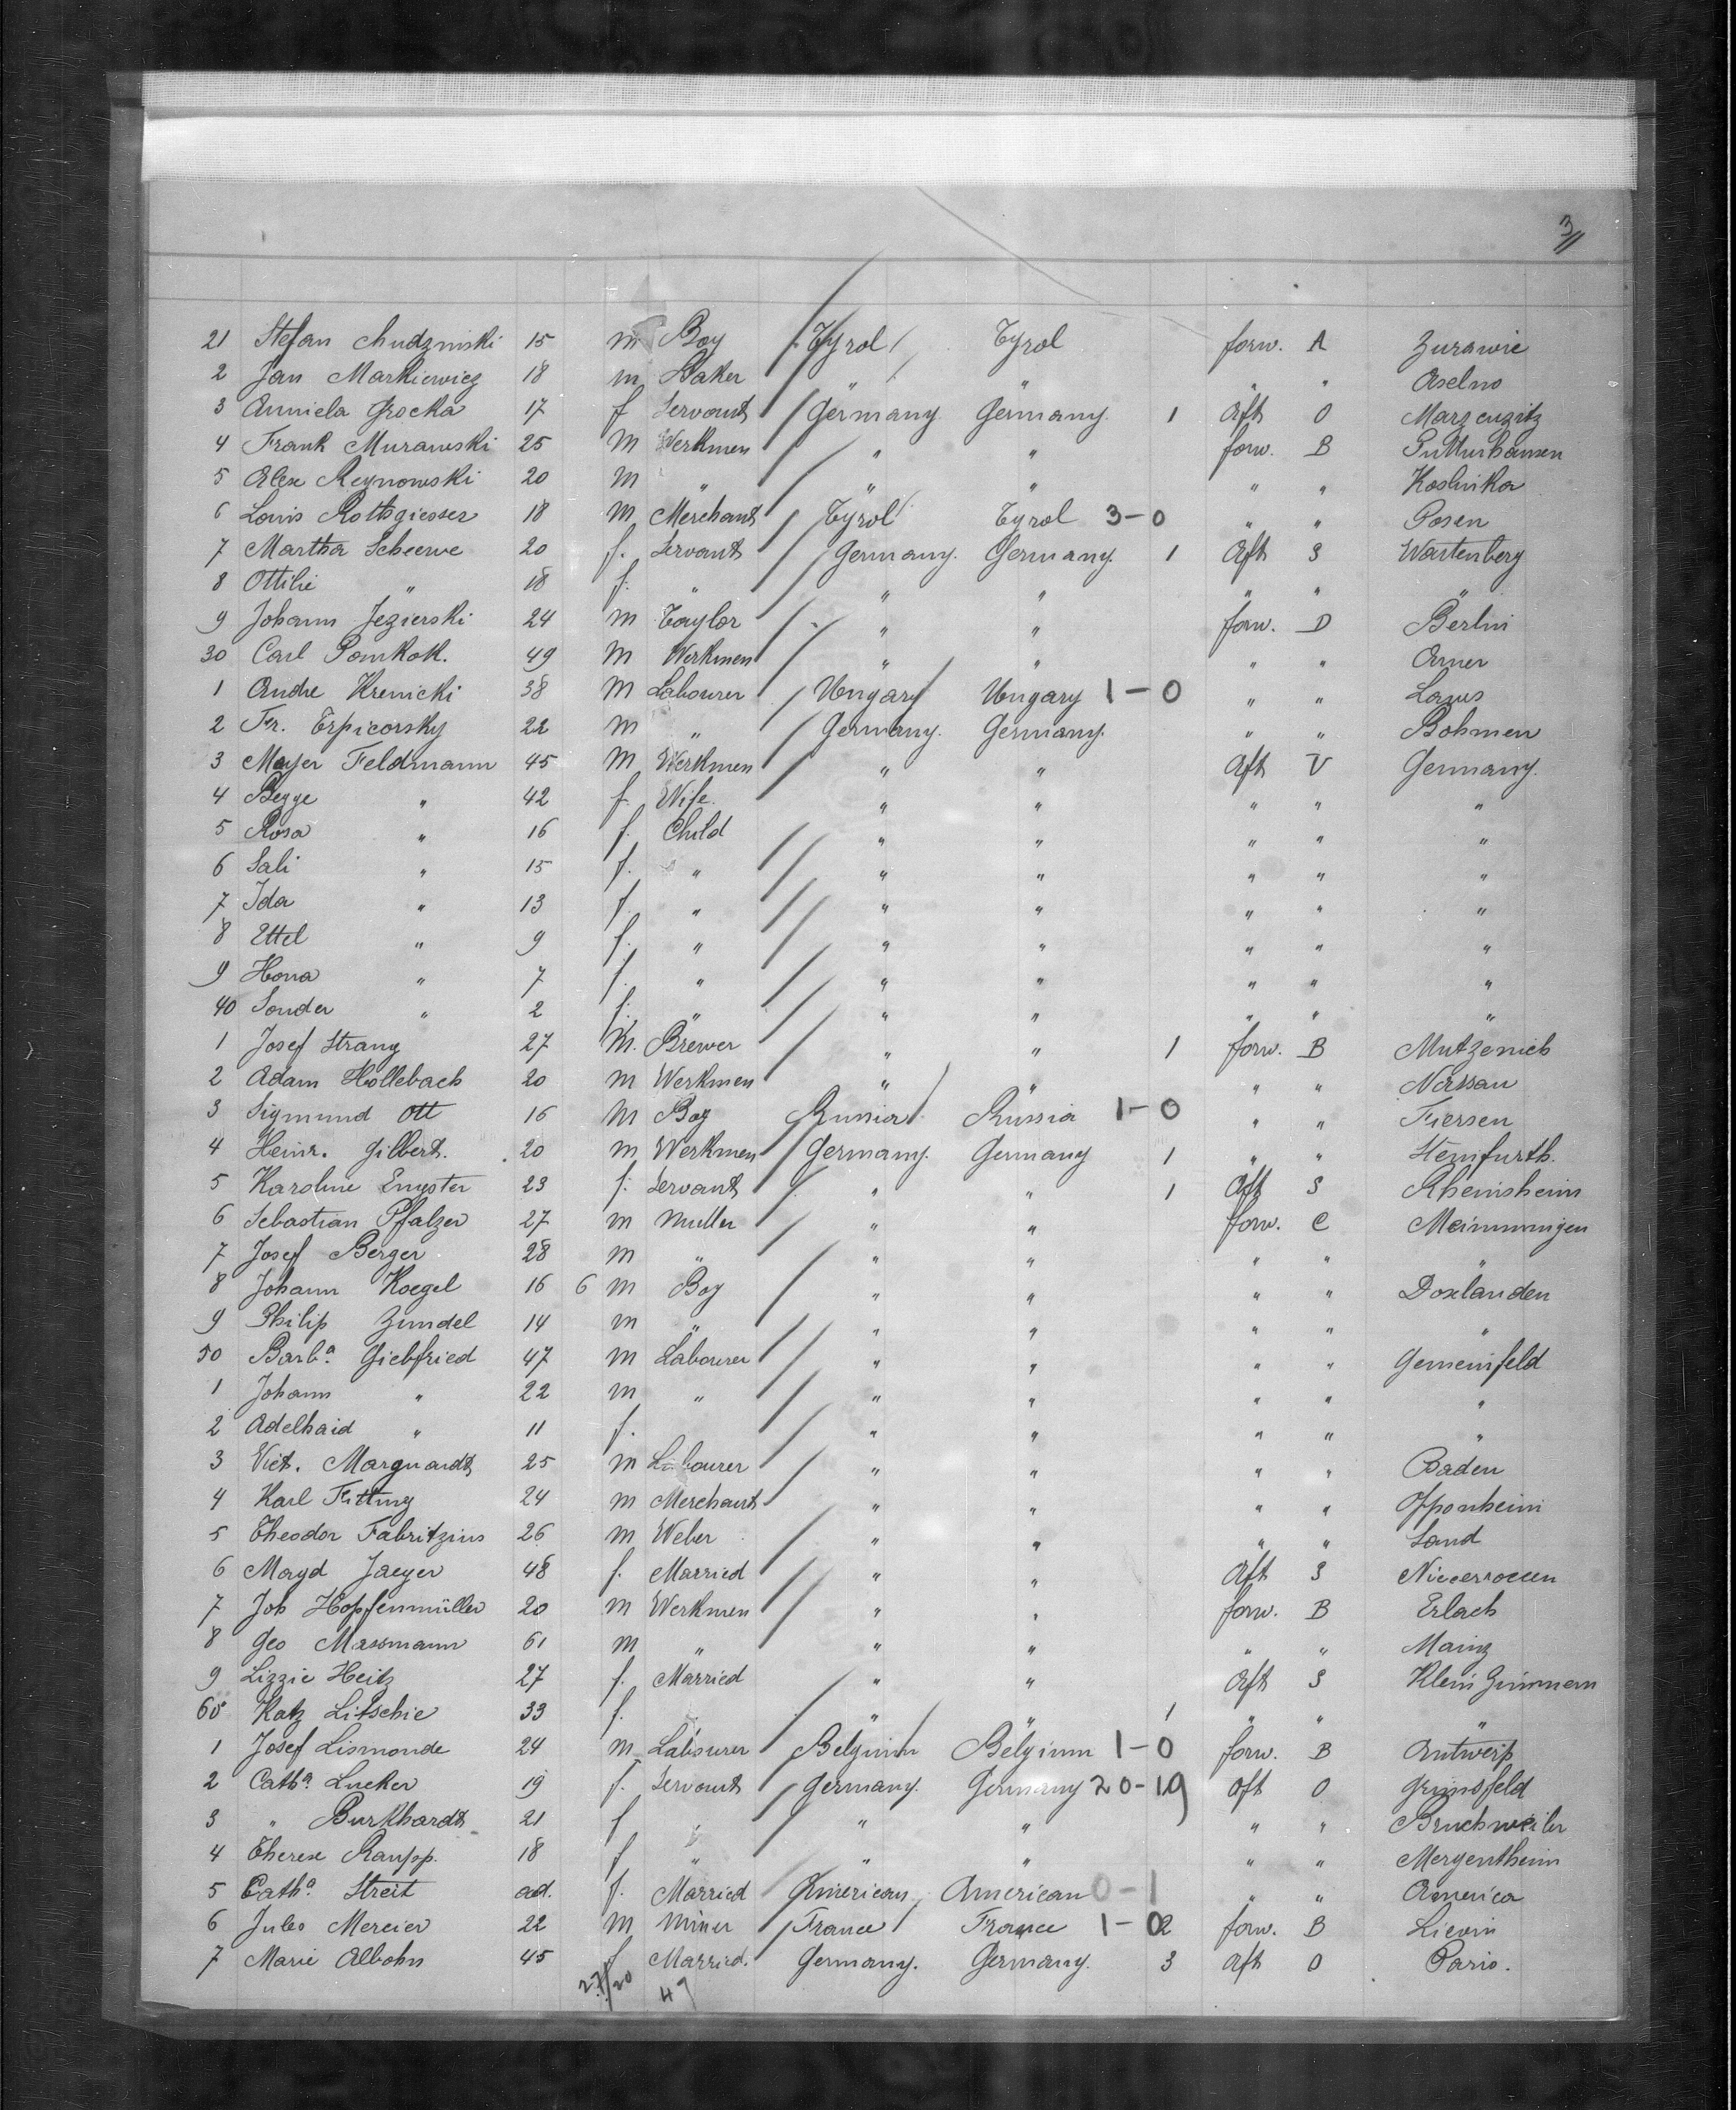 3/
21 Stefan Chudzinski 15 m Boy Tyrol Tyrol forw. A Zurawie
2 Jan Markiewicz 18 m Baker " " " " Oselno
3 Anniela Grocka 17 f Servant Germany Germany. 1 Aft O
4 Frank Murawski 25 m Werkmen " " forw. B
5 Alex Reynowski 20 m " " " " " Koslinka
6 Louis Rottsgiesser 18 m Merchant Tyrol Tyrol 3-0 " " Posen
7 Martha Scheewe 20 f. Servant Germany. Germany. 1 Aft S Wartenberg
8 Ottilie " 18 f. " " " " " "
9 Johann Jezierski 24 m Taylor " " forw. D Berlin
30 Carl Pomkok. 49 m Werkmen " " " " Orner
1 Andre Krenicki 38 m Labourer Ungary Ungary 1-0 " " Laws
2 Fr. Erpicorsky 22 m " Germany. Germany. " " Bohmen
3 Mayer Feldmann 45 m Werkmen " " Aft V Germany.
4 Begge " 42 f. Wife. " " " " "
5 Rosa " 16 f. Child " " " " "
6 Sali " 15 f. " " " " " "
7 Ida " 13 f. " " " " " "
8 Ettel " 9 f. " " " " " "
9 Hona " 7 f. " " " " " "
40 Sonder " 2 f. " " " " " "
1 Josef Strang 27 m. Brewer " " 1 forw. B Mutzenich
2 Adam Hollebach 20 m Werkmen " " " " Nassau
3 Sigmund Ott 16 m Boy Russia Russia 1-0 " " Fiersen
4 Heinr. Gilbert. 20 m Werkmen Germany. Germany 1 " " Stemfurth.
5 Karoline Engster 23 f. Servant " " 1 Aft S Rheinsheim
6 Sebastian Pfalzer 27 m Muller " " forw. C Meimmingen
7 Josef Berger 28 m " " " " " "
8 Johann Koegel 16 6 m Boy " " " " Doxlanden
9 Philip Zundel 14 m " " " " " "
50 Barbª. Giebfried 47 m Labourer " " " " Gemeinfeld
1 Johann " 22 m " " " " " "
2 Adelhaid " 11 f. " " " " "
3 Vict. Marguardt 25 m Labourer " " " " Baden
4 Karl Fitting 24 m Merchant " " " " Opponheim
5 Theodor Fabritzius 26 m Weber " " " " Sand
6 Mayd Jaeger 48 f. Married " " Aft S
7 Joh Hopfenmüller 20 m Werkmen " " forw. B Erlach
8 Geo Massmann 61 m " " " " " Mainz
9 Lizzie Heitz 27 f. Married " " Aft S Klein Zimmern
60 Katz Litschie 33 f. " " " 1 " " "
1 Josef Lismonde 24 m Labourer Belgium Belgium 1-0 forw. B Antwerp
2 Cathª. Lucker 19 f. Servant Germany. Germany 20-19 Aft O Grünsfeld
3 " Burkhardt 21 f " " " " " Bruchweiler
4 Therese Raupp. 18 f " " " " " Mergentheim
5 Cathª. Streit ad. f. Married American American 0-1 " " America
6 Jules Mercier 22 m Miner France France 1-0 2 forw. B Lievin
7 Marie Albohn 45 f Married. Germany. Germany. 3 Aft O Paris.
27/20 49